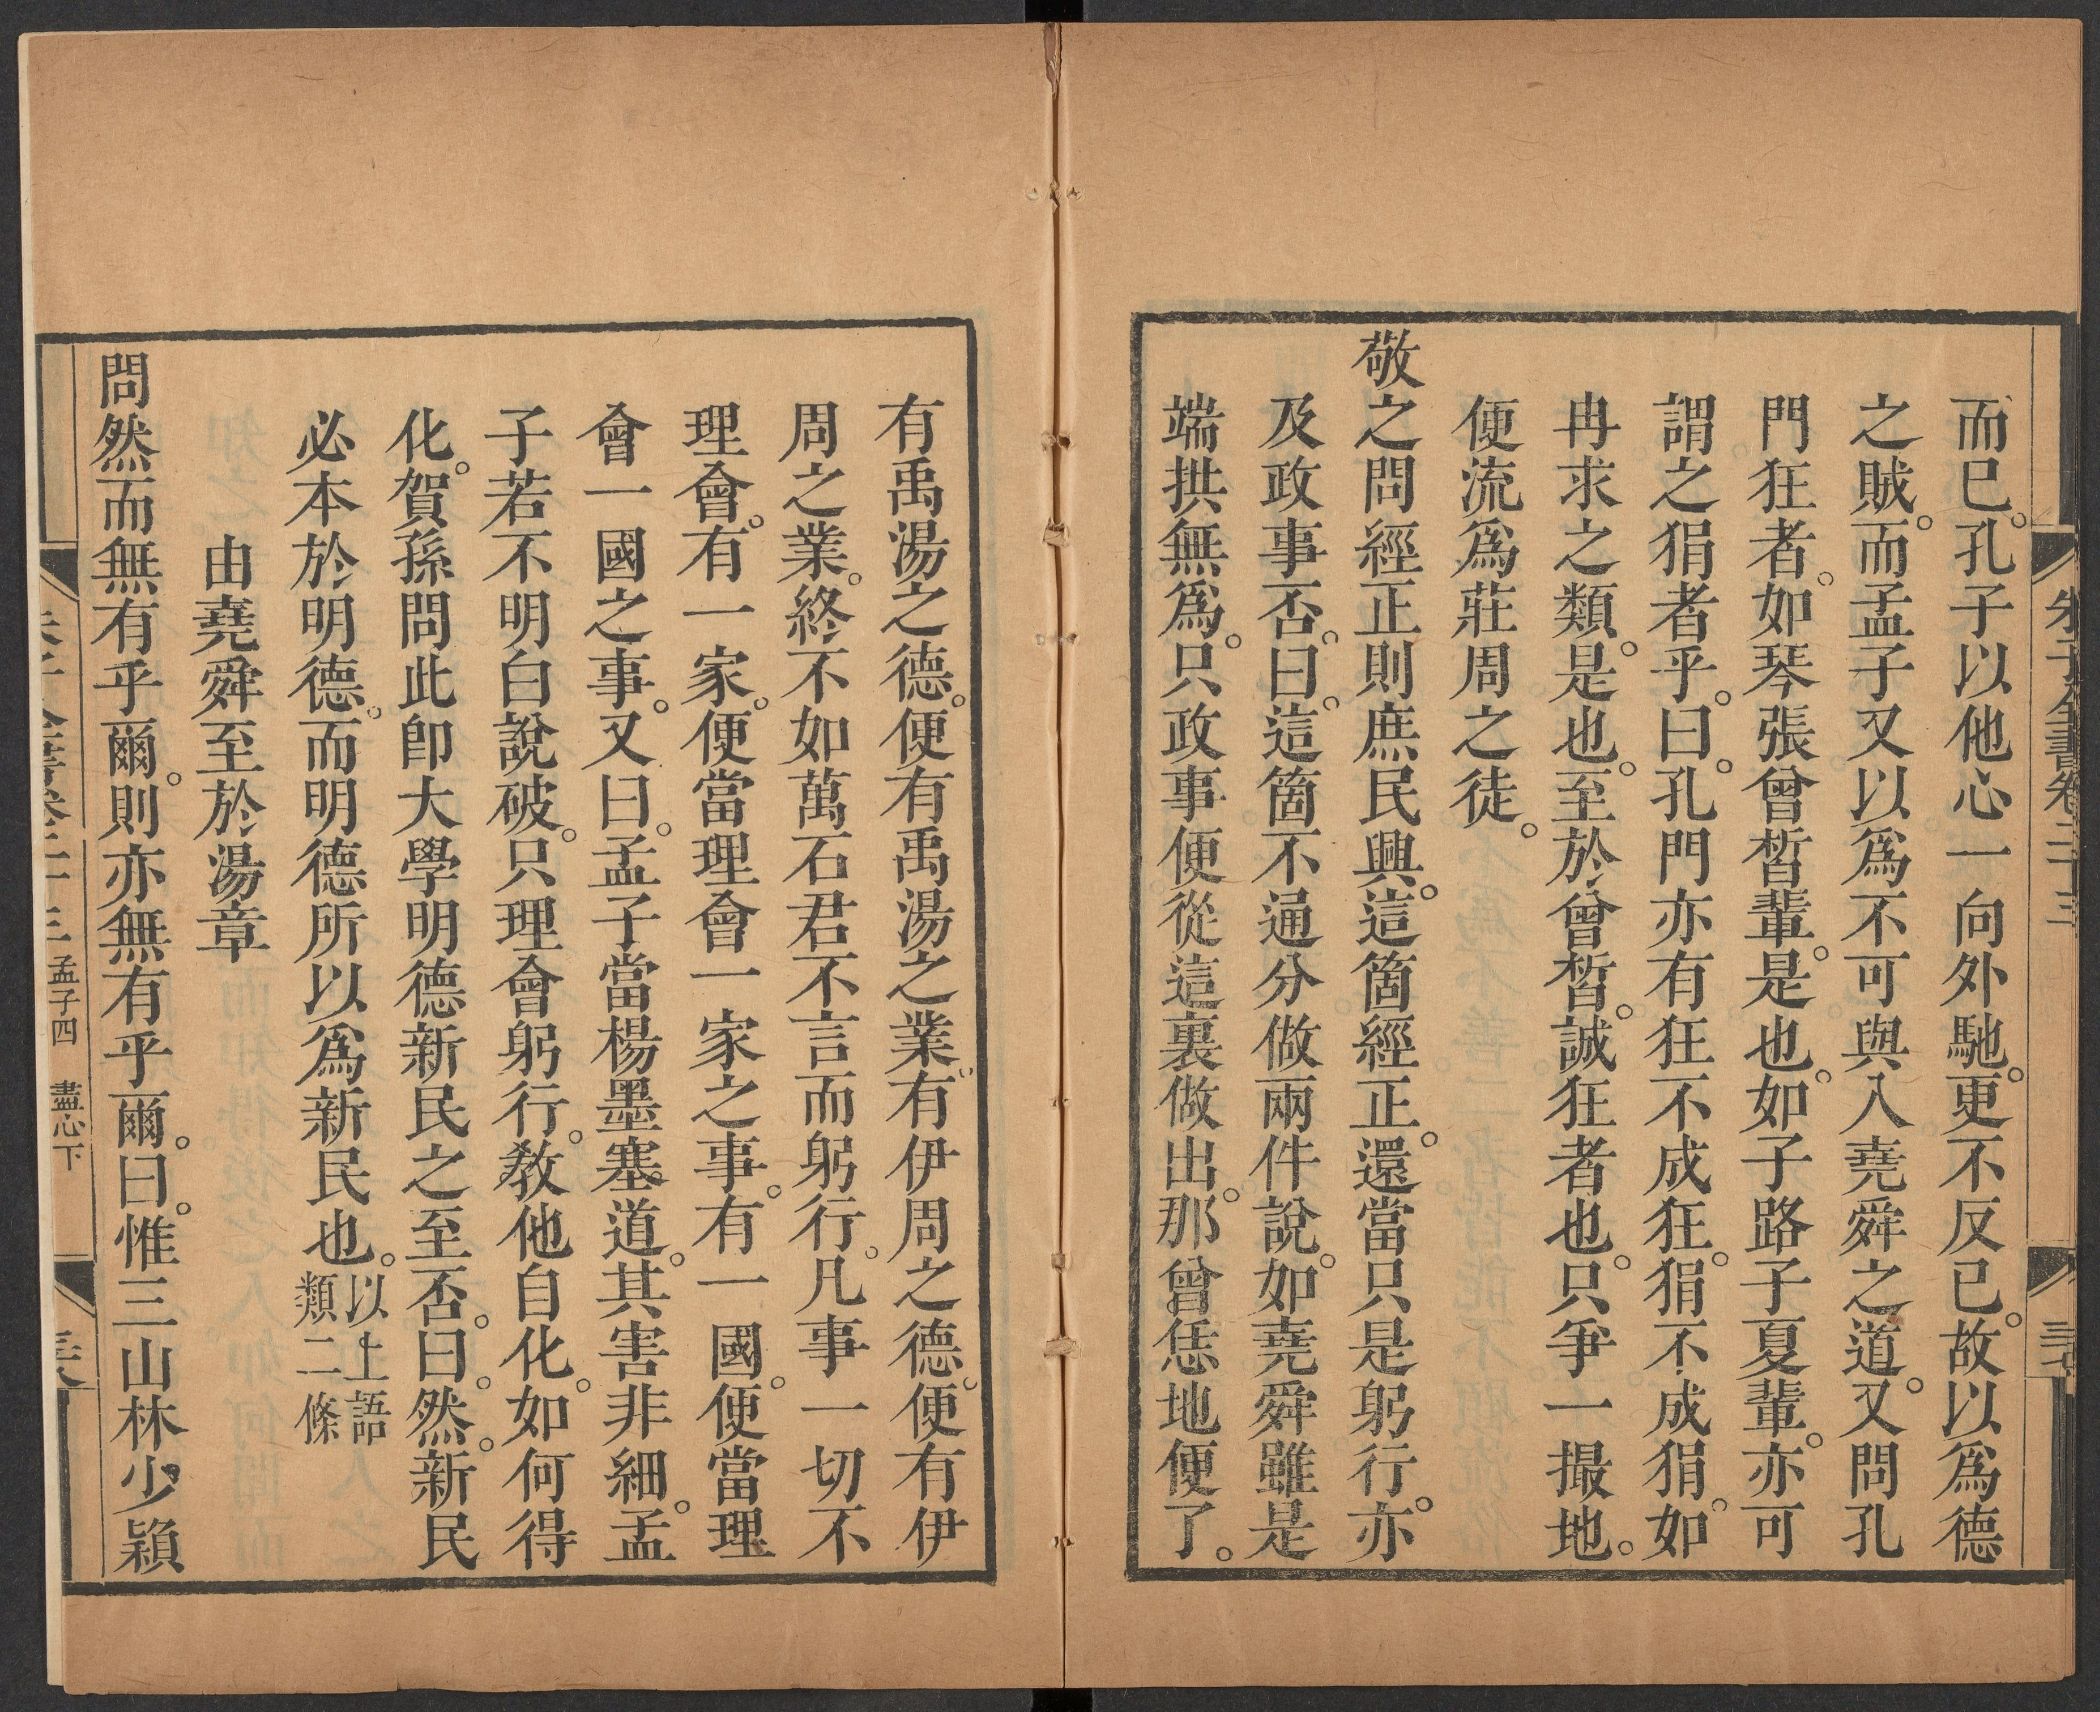 而已。孔子以他心一向外馳。更不反己。故以爲德
之賊。而孟子又以爲不可與入堯舜之道。又問孔
門狂者。如琴張曾晳輩。是也。如子路子夏輩。亦可
謂之狷者乎。曰。孔門亦有狂不成狂。狷不成狷。如
冉求之類。是也。至於曾晳。誠狂者也。只爭一撮地。
便流爲莊周之徒。
敬之問經正則庶民興。這箇經正。還當只是躬行。亦
及政事否。曰。這箇不通分做兩件說。如堯舜雖是
端拱無爲。只政事便從這裏做出。那曾恁地便了。
有禹湯之德。便有禹湯之業。有伊周之德。便有伊
周之業。終不如萬石君不言而躬行。凡事一切不
理會。有一家。便當理會一家之事。有一國。便當理
會一國之事。又曰。孟子當楊墨塞道。其害非細。孟
子若不明白說破。只理會躬行。敎他自化。如何得
化。賀孫問此卽大學明德新民之至否。曰。然。新民
必本於明德。而明德所以爲新民也。以上語類二條
由堯舜至於湯章
問然而無有乎爾。則亦無有乎爾。曰。惟三山林少穎
孟子四 盡心下